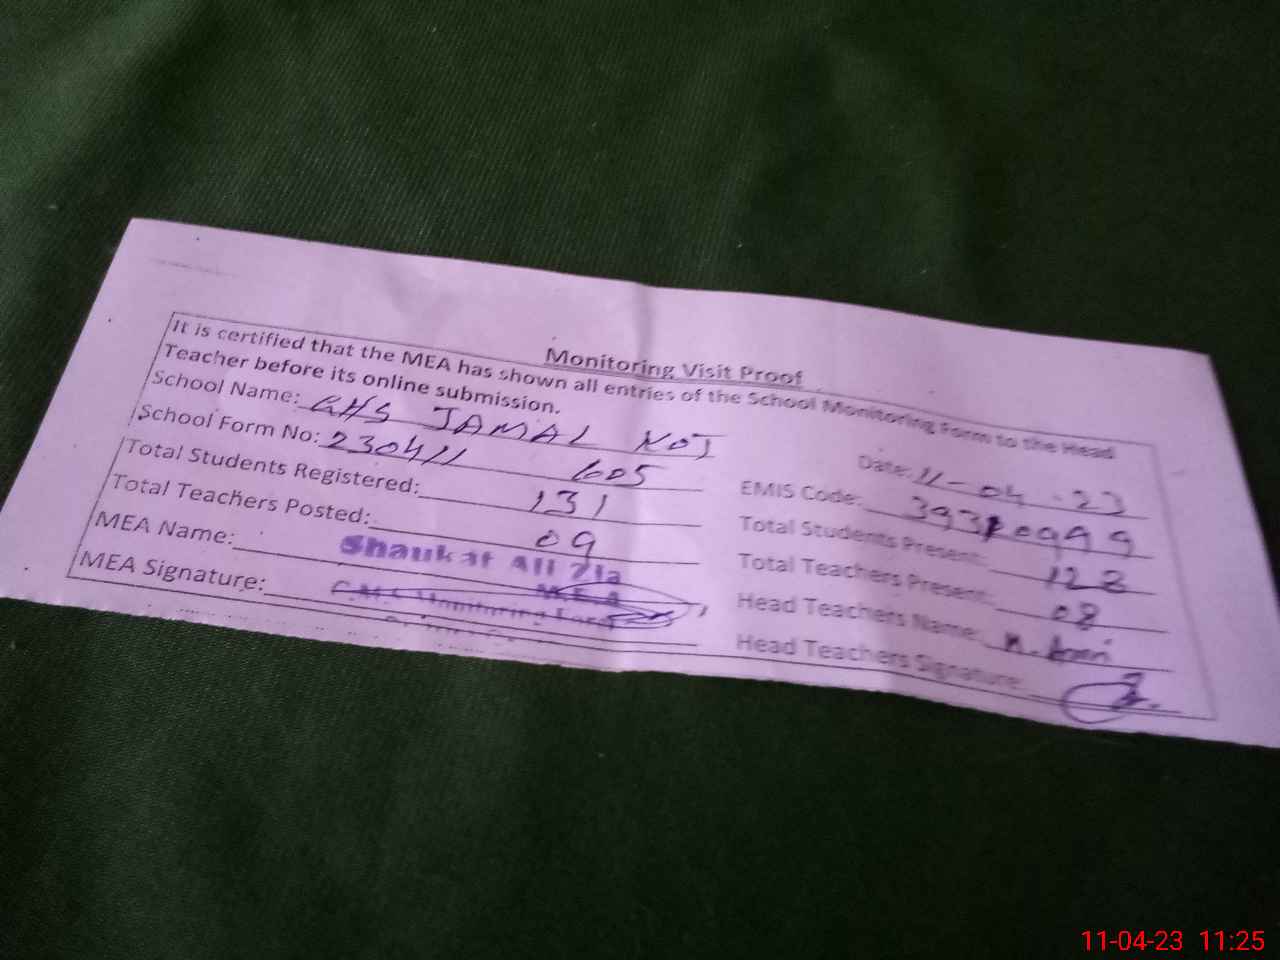 Monitoring Visit Proof
It is certified that the MEA has shown all entries of the School Monitoring Form to the Head
Teacher before its online submission.
School Name: GHS JAMAL KOT
Date: 11-04-23
School Form No: 230411 605
EMIS Code: 39310999
Total Students Registered: 131
Total Students Present: 128
Total Teachers Posted: 09
Total Teachers Present: 08
MEA Name: Shaukat Ali Zia
M.E.A
Head Teachers Name:
MEA Signature:
Monitoring Force
Head Teachers Signature:
11-04-23 11:25